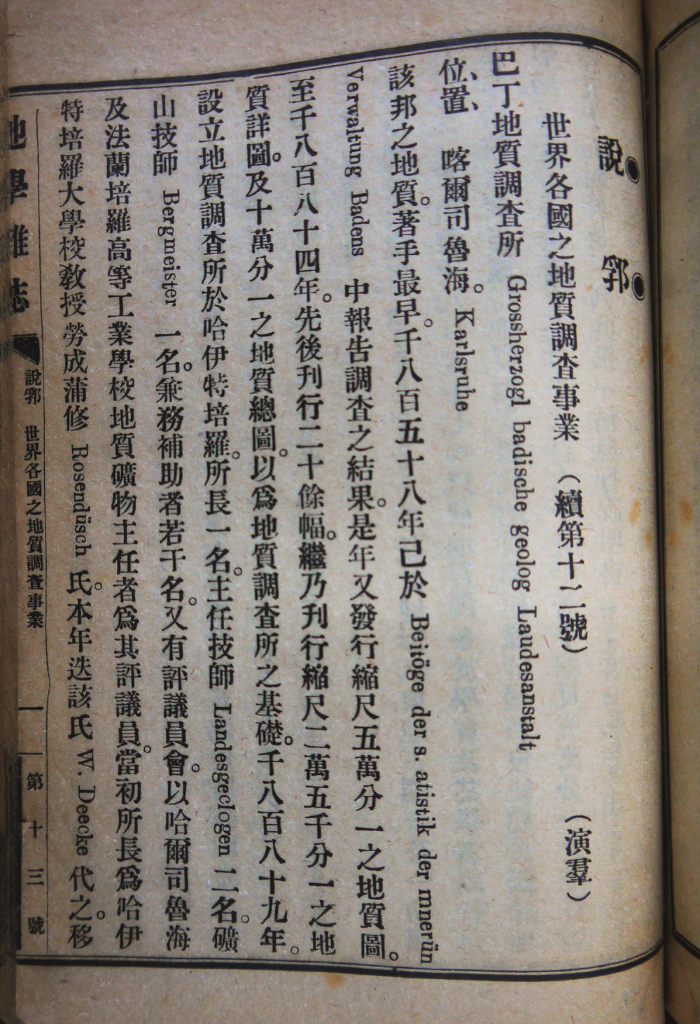 說郛
世界各國之地質調查事業 (續第十二號) (演羣)
巴丁地質調查所 Grossherzogl badische geolog Laudesanstalt
位置、喀爾司魯海。Karlsruhe
該邦之地質。著手最早。千八百五十八年己於 Beitöge der s. atistik der mnerün
Verwaltung Badens 中報告調查之結果。是年又發行縮尺五萬分一之地質圖。
至千八百八十四年。先後刊行二十餘幅。繼乃刊行縮尺二萬五千分一之地
質詳圖。及十萬分一之地質總圖。以爲地質調查所之基礎。千八百八十九年。
設立地質調查所於哈伊特培羅。所長一名。主任技師 Landesgeclogen 二名。礦
山技師 Bergmeister 一名。兼務補助者若干名。又有評議員會。以哈爾司魯海
及法蘭培羅高等工業學校地質礦物主任者爲其評議員。當初所長爲哈伊
特培羅大學校敎授勞成蒲修 Rosendüsch 氏。本年迭該氏 W. Deecke 代之。移
地學雜誌 說郛 世界各國之地質調查事業 一 第十三號